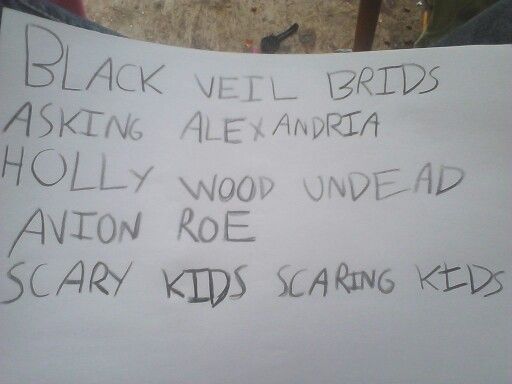 BLACK VEIL BRIDS
ASKING ALEXANDRIA
HOLLY WOOD UNDEAD
AVION ROE
SCARY KIDS SCARING KIDS